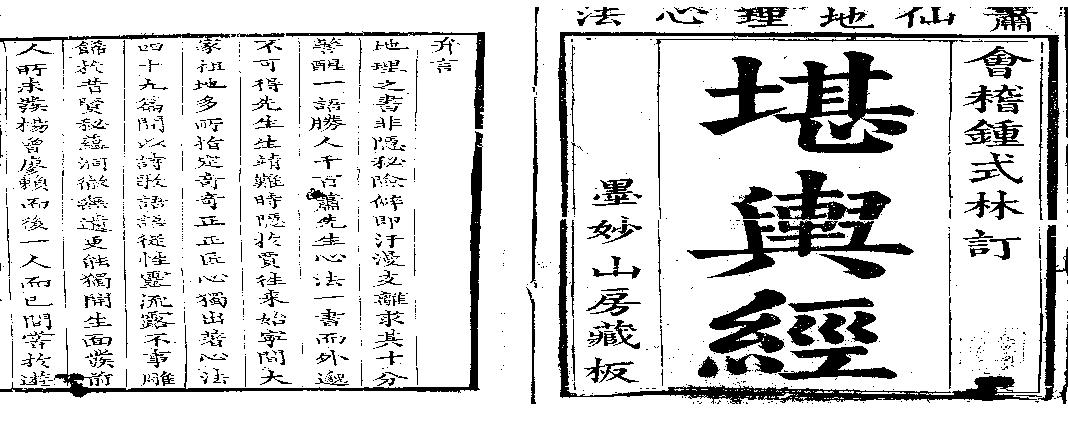 蕭仙地理心法
會稽鍾式林訂
堪輿經
墨妙山房藏板
弁言
地理之書非隱秘險僻即汗漫支離求其十分
警醒一語勝人千百蕭先生心法一書而外邈
不可得先生生靖難時隱於賈往來始寧間大
家祖地多所指定奇奇正正匠心獨出著心法
四十九篇間以詩歌語語從性靈流露不事雕
飾於昔賢秘蘊洞徹無遺更能獨開生面發前
人所未發楊曾廖賴而後一人而已間嘗於遊